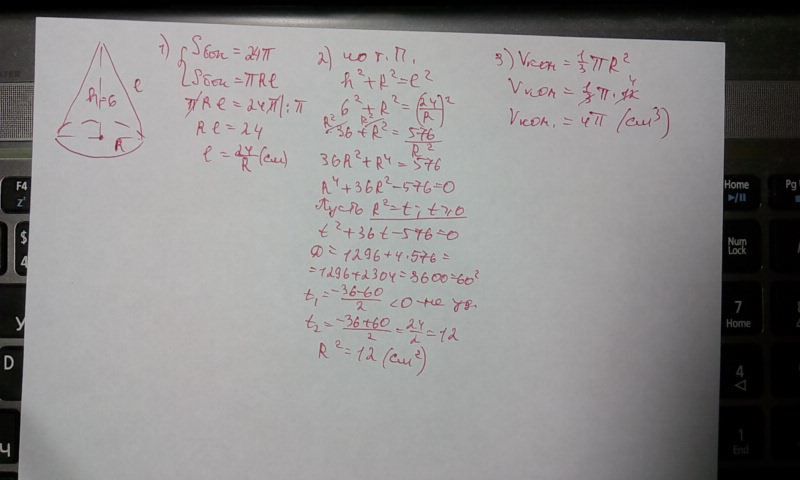 h=6
l
R
1) { Sбок = 24π
Sбок = πRl
πRl = 24π | : π
Rl = 24
l = 24/R (см)
2) по т. П.
h² + R² = l²
6² + R² = (24/R)²
R² R²
36 + R² = 576/R²
36R² + R⁴ = 576
R⁴ + 36R² - 576 = 0
Пусть R² = t; t ≥ 0
t² + 36t - 576 = 0
D = 1296 + 4·576 =
= 1296 + 2304 = 3600 = 60²
t₁ = (-36-60)/2 < 0 - не уд.
t₂ = (-36+60)/2 = 24/2 = 12
R² = 12 (см²)
3) Vкон = 1/3 πR²
4
Vкон = 1/3 π · 12
Vкон. = 4π (см³)
F4
z
$
4
У
D
Ч
Home
Pg
Num
Lock
7
Home
4
1
End